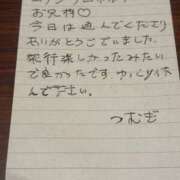 お兄様♡
今日は遊んでくださり
ありがとうございました。
旅行楽しかったみたい
で良かったです。ゆっくり休
んで下さい。
つむぎ